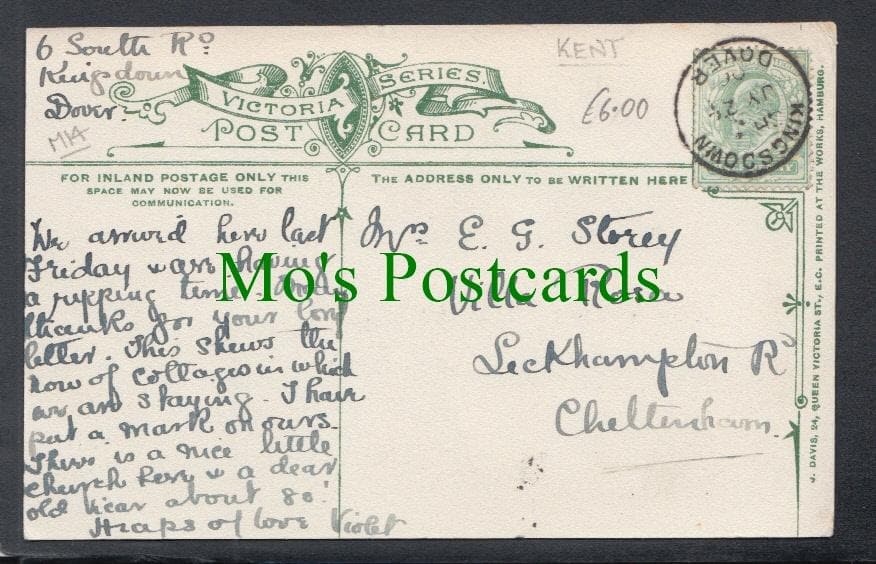 6 South Rd
Kingsdown
Dover.
M14
KENT
£6.00
VICTORIA SERIES.
POST CARD
KINGSDOWN
DOVER
FOR INLAND POSTAGE ONLY THIS
SPACE MAY NOW BE USED FOR
COMMUNICATION.
THE ADDRESS ONLY TO BE WRITTEN HERE
We arrived here last
Friday & are having
a ripping time. Many
thanks for your long
letter. This shews the
row of cottages in which
we are staying. I have
put a mark on ours.
There is a nice little
church here & a dear
old vicar about 80!
Heaps of love Violet
Mrs E. G. Storey
Villa Rosa
Leckhampton Rd
Cheltenham
Mo's Postcards
J. DAVIS, 24, QUEEN VICTORIA ST., E.C. PRINTED AT THE WORKS, HAMBURG.